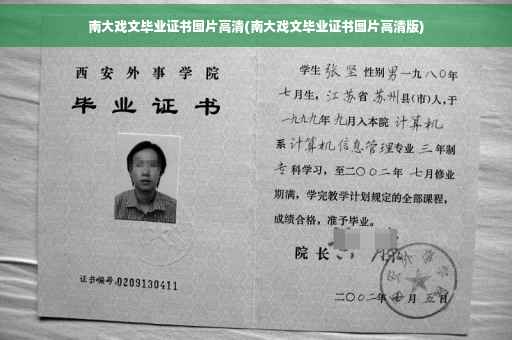 南大戏文毕业证书图片高清(南大戏文毕业证书图片高清版)
西安外事学院
毕业证书
证书编号:0209130411
学生张坚性别男一九八〇年
七月生，江苏省苏州县(市)人,于
一九九九年九月入本院计算机
系计算机信息管理专业三年制
专科学习，至二〇〇二年七月修业
期满，学完教学计划规定的全部课程，
成绩合格，准予毕业。
院长
二〇〇二年 月五日